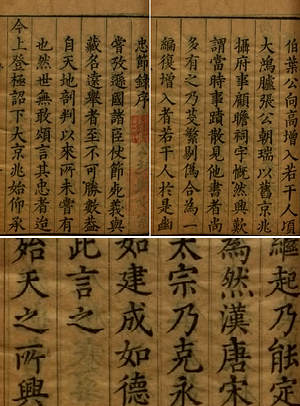 伯葉公向高增入者若干人頃
大鴻臚張公朝瑞以舊京兆
攝府事顧瞻祠宇慨然興歎
謂當時事蹟散見他書者尚
多有之乃芟繁剔偽合為一
編復增入者若干人於是幽
忠節錄序
嘗攷遜國諸臣伏節死義與
藏名遠舉者至不可勝數盖
自天地剖判以來所未嘗有
也然世無敢頌言其忠者迨
今上登極詔下大京兆始仰承
繼起乃能定
為然漢唐宋
太宗乃克永
如建成如德
此言之
始天之所興